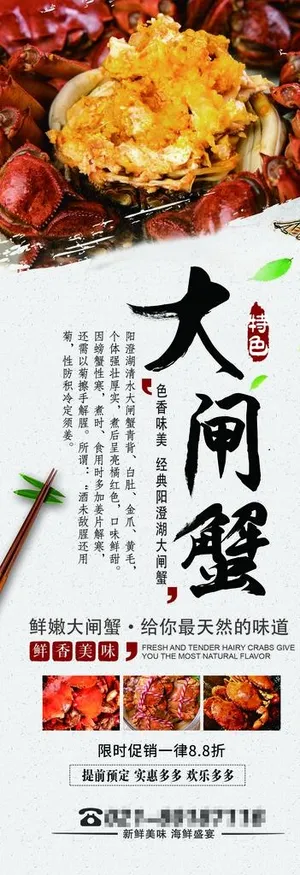 特色
大闸蟹
色香味美 经典阳澄湖大闸蟹
阳澄湖清水大闸蟹青背、白肚、金爪、黄毛，
个体强壮厚实，煮后呈亮橘红色，口味鲜甜。
因螃蟹性寒，煮时、食用时多加姜片解寒，
还需以菊擦手解腥。所谓：“酒未敌腥还用
菊，性防积冷定须姜。
鲜嫩大闸蟹·给你最天然的味道
鲜香美味
FRESH AND TENDER HAIRY CRABS GIVE
YOU THE MOST NATURAL FLAVOR
限时促销一律8.8折
提前预定 实惠多多 欢乐多多
新鲜美味 海鲜盛宴